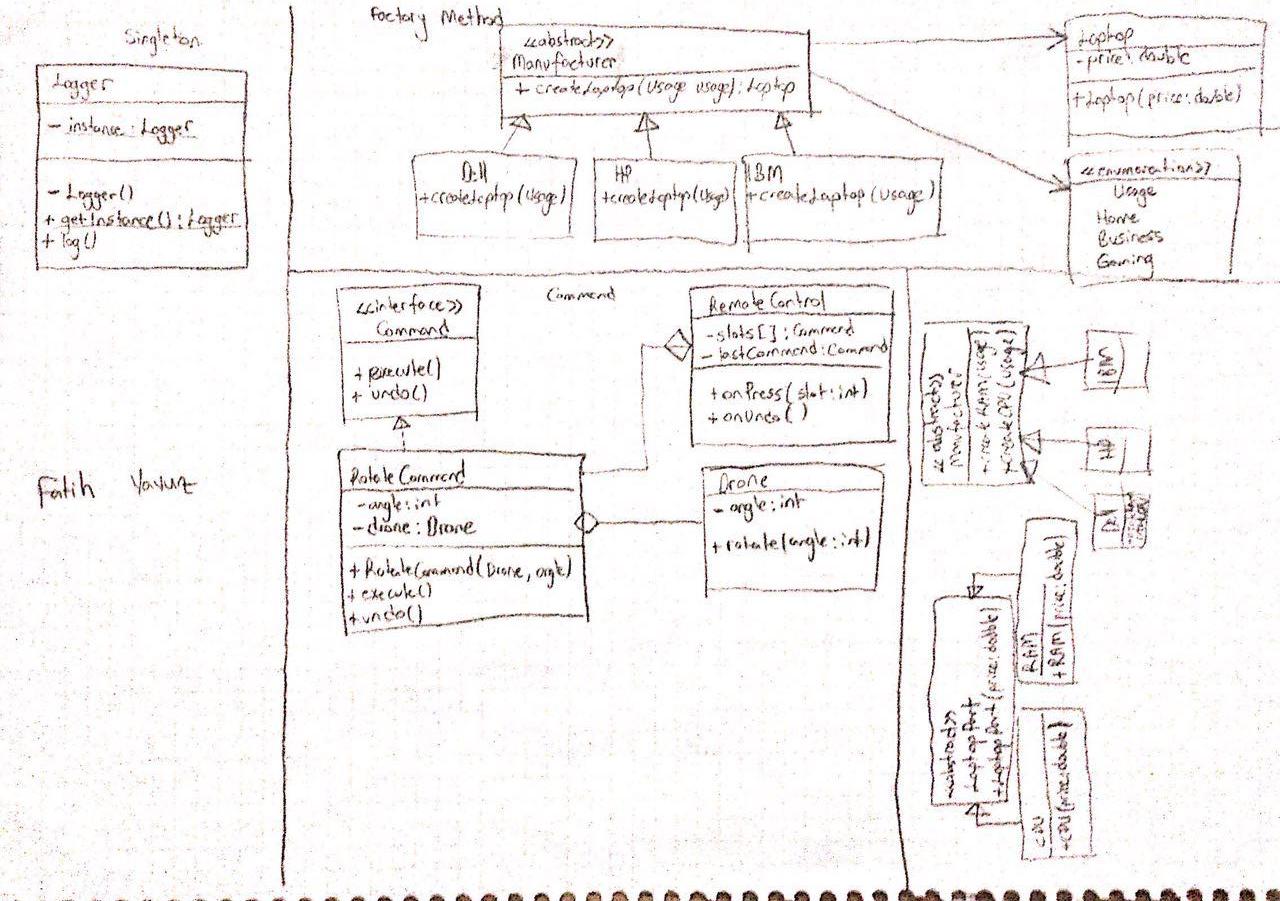 Singleton
Logger
- instance: Logger
- Logger()
+ getInstance(): Logger
+ log()
Fatih Yavuz
Factory Method
<<abstract>>
Manufacturer
+ createLaptop(Usage usage): Laptop
Dell
+createLaptop(Usage)
HP
+createLaptop(Usage)
IBM
+createLaptop(Usage)
Laptop
- price: double
+Laptop(price: double)
<<enumeration>>
Usage
Home
Business
Gaming
Command
<<interface>>
Command
+ execute()
+ undo()
Remote Control
- slots[]: Command
- lastCommand: Command
+ onPress(slot: int)
+ onUndo()
RotateCommand
- angle: int
- drone: Drone
+ RotateCommand(Drone, angle)
+ execute()
+ undo()
Drone
- angle: int
+ rotate(angle: int)
<<abstract>>
Manufacturer
+ create RAM(usage)
+ createCPU(usage)
IBM
HP
Dell
<<abstract>>
LaptopPart
+ LaptopPart(price: double)
RAM
+ RAM(price: double)
CPU
+ CPU(price: double)